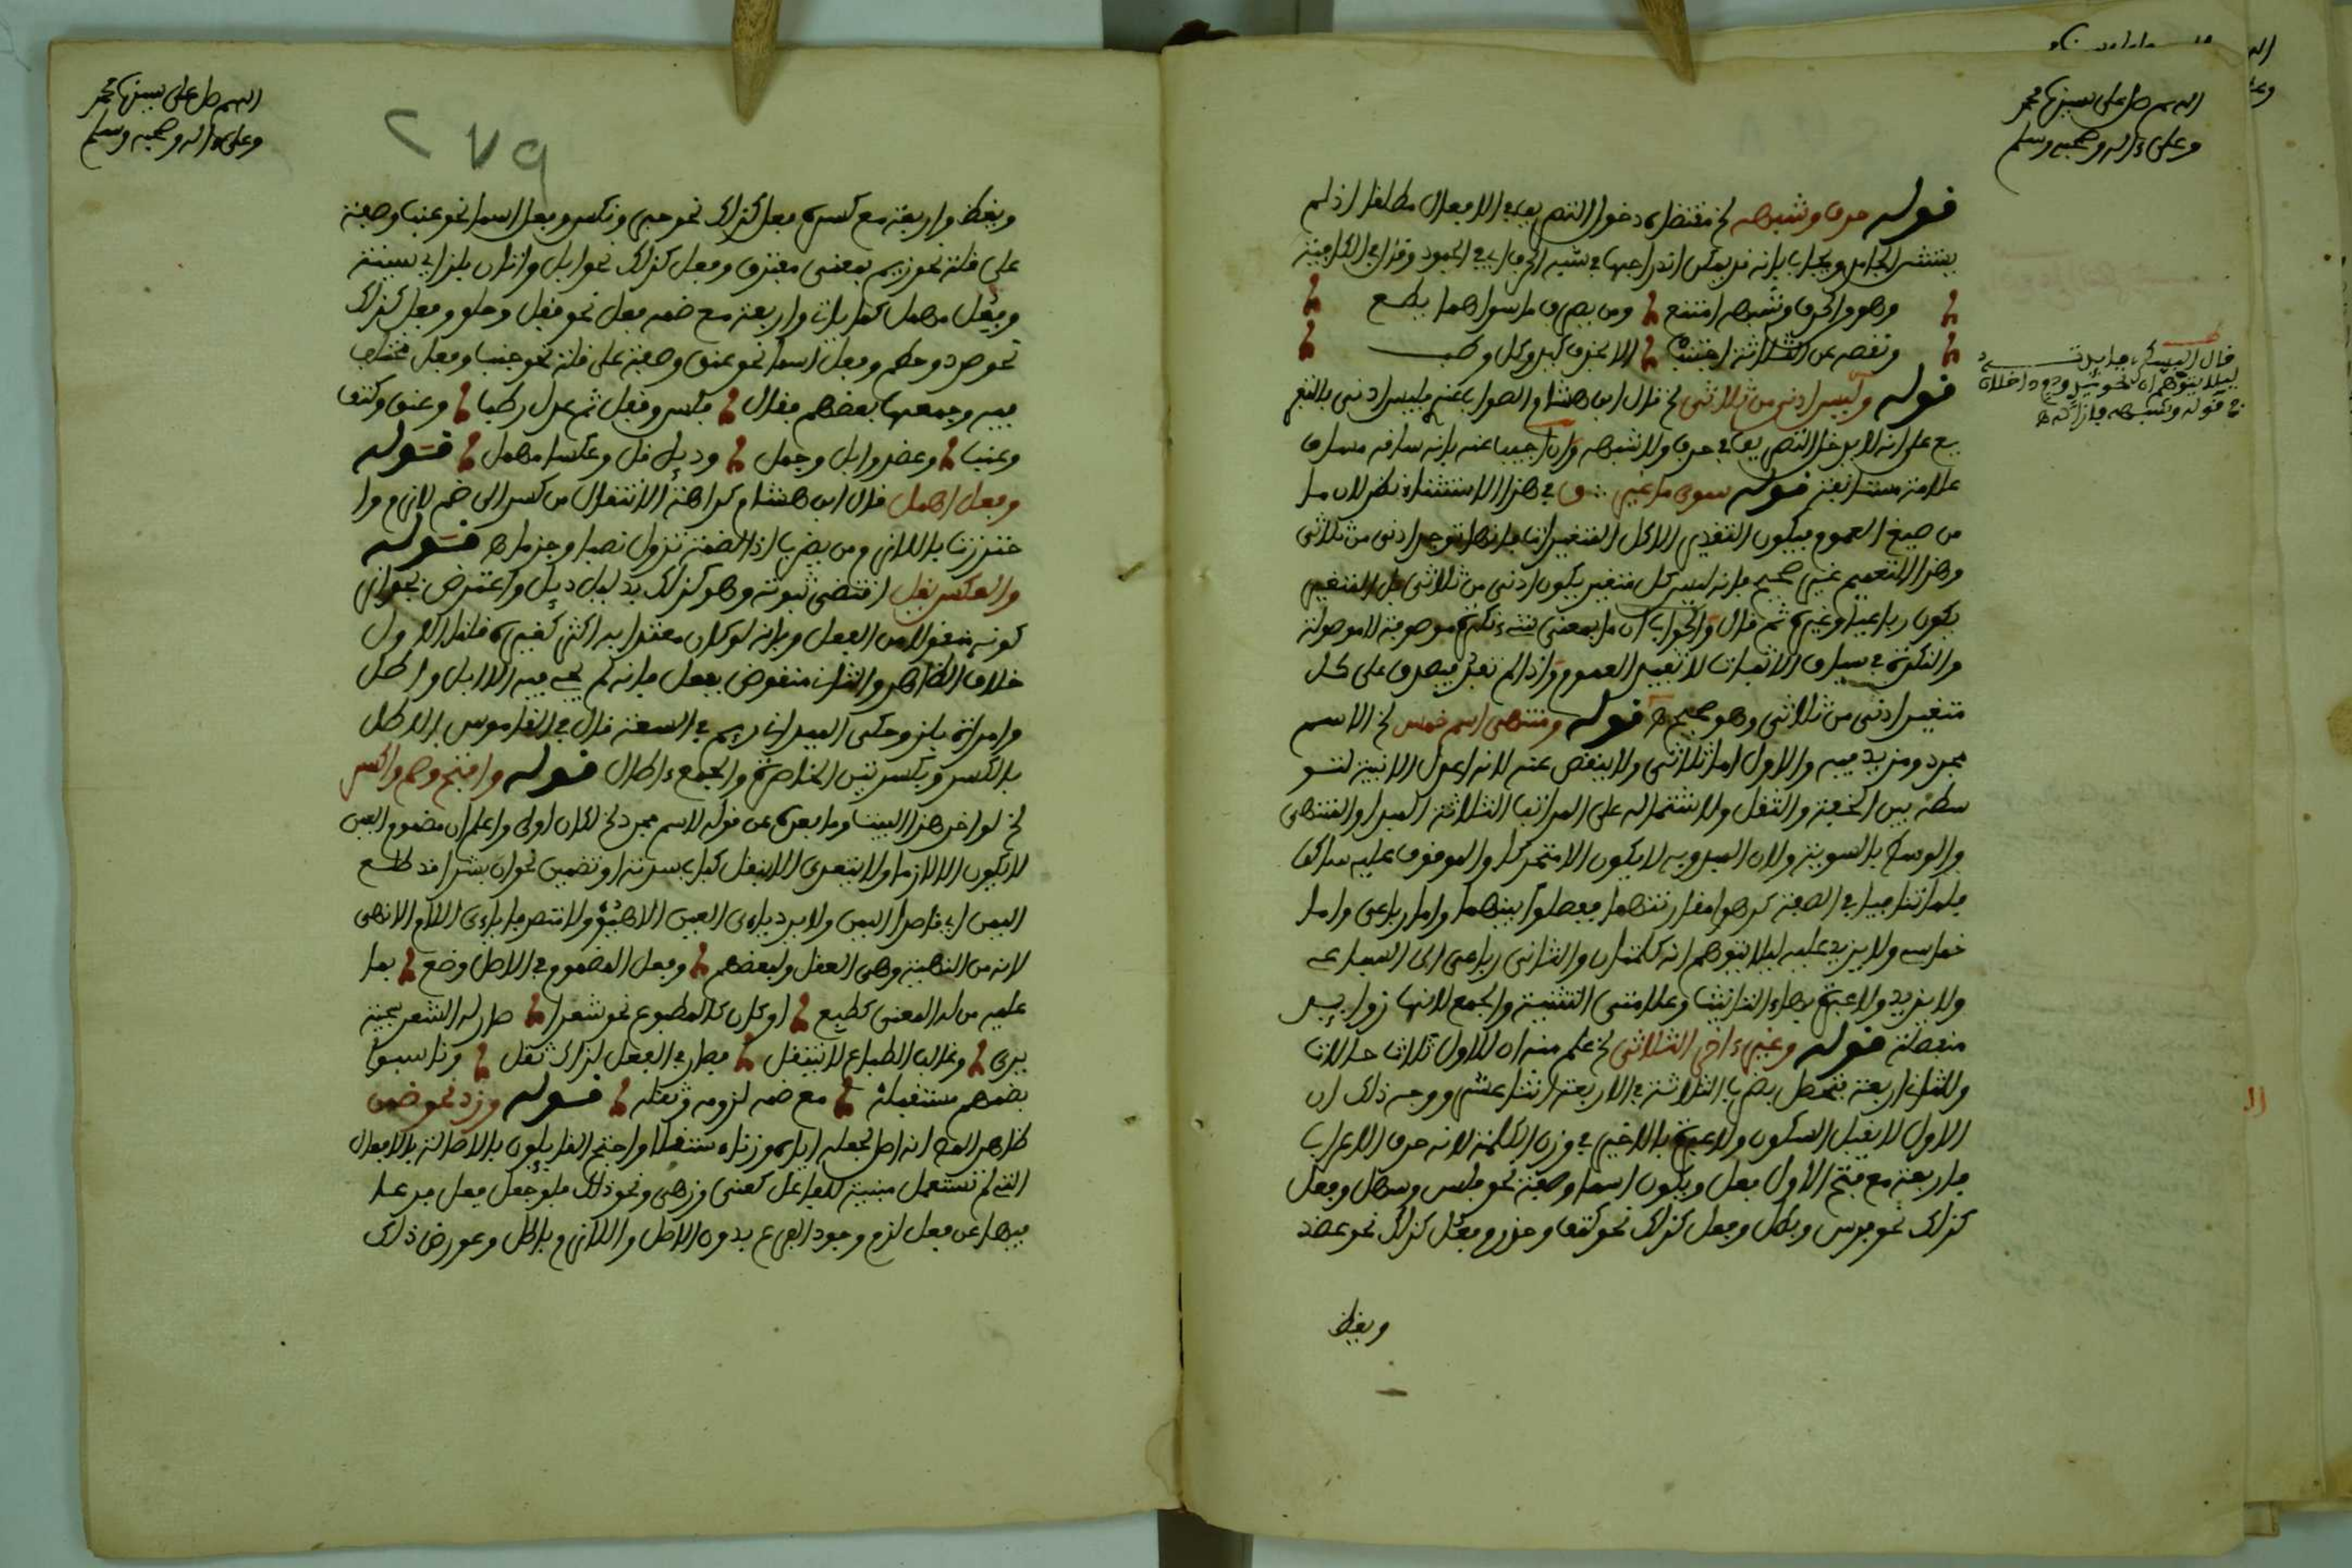 اللهم صل على سيدنا محمد
وعلى ءاله وصحبه وسلم
قوله حرف وشبهه الخ مقتضاه دخول التصريف في الافعال مطلقا اذ لم
يستثن الجامد ويجاب بانه قد يمكن اندراجها في شبه الحرف اي في الجمود وقد
وهو والحرف وشبهه امتنع ومن يصرف ما سواهما يطع
ونقصه عن الثلاثة اجتنب الا بحذف كيد وكل
قوله وليس ادنى من ثلاثي الخ قال ابن هشام الصواب عنه فليس ادنى بالتفر
يع على انه لا يدخل التصريف في حرف ولا شبهه وان اجيب عنه بانه ساقه مساق
علامة مستانفة قوله سوى ما غير ق في هذا الاستثناء نظر لان ما
من صيغ العموم فيكون التقدير الا كل المتغيرات فانها توجد ادنى من ثلاثي
وهذا التعميم غير صحيح فانه ليس كل متغير يكون ادنى من ثلاثي بل المتغير
يكون رباعيا وغيره ثم قال والجواب ان ما بمعنى شيء نكرة موصوفة لا موصولة
والنكرة في سياق الاثبات لا تفيد العموم واذا لم تعم فيصدق على كل
متغير ادنى من ثلاثي وهو صحيح ه قوله ومنتهى اسم خمس الخ الاسم
مجرد ومزيد فيه والاول اما ثلاثي ولا ينقص عنه لانه اعدل الابنية لتو
سطه بين الخفة والثقل ولاشتماله على المراتب الثلاثة المبدا والمنتهى
والوسط بالسوية ولان المبدوء به لا يكون الا متحركا والموقوف عليه ساكنا
فلما تنافيا في الصفة كرهوا مقارنتهما ففصلوا بينهما واما رباعي واما
خماسي ولا يزيد عليه ليلا يتوهم انه كلمتان والثاني رباعي الى السباعي
ولا يزيد ولا عبرة بهاء التانيث وعلامتي التثنية والجمع لانها زوايد
منفصلة قوله وغير ءاخر الثلاثي الخ علم منه ان للاول ثلاث حالات
وللثاني اربعة يتحصل بضرب الثلاثة في الاربعة اثنا عشر ووجه ذلك ان
الاول لا يقبل السكون ولا عبرة بالاخير في وزن الكلمة لانه حرف الاعراب
فاربعة مع فتح الاول فعل ويكون اسما وصفة نحو فلس وسهل وفعل
كذلك نحو فرس وبطل وفعل كذلك نحو كتف وحذر وفعل كذلك نحو عضد
ويقظ
ليلا يتوهم ان نحو
قوله وشبهه
اللهم صل على سيدنا محمد
وعلى ءاله وصحبه وسلم
٢٧٩
ويقظ واربعة مع كسره فعل كذلك نحو حبر ونكس وفعل اسما نحو عنب وصفة
على قلة نحو زيم بمعنى مفترق وفعل كذلك نحو ابل واتان بلز اي سمينة
وفعل مهمل كما ياتي واربعة مع ضمه فعل نحو قفل وحلو وفعل كذلك
نحو صرد وحطم وفعل اسما نحو عنق وصفة على قلة نحو جنب وفعل مختلف
فيه وجمعها بعضهم فقال فلس وقفل ثم عدل رطبا وعنق وكتف
وعنب وعضد وابل وجمل ودئل قل وعكسا مهمل قوله
وفعل اهمل قال ابن هشام كراهة الانتقال من كسر الى ضم لازم وا
حترزت باللازم من يضرب اذ الضمة تزول نصبا وجزما ه قوله
والعكس يقل اقتضى ثبوته وهو كذلك بدليل دئل واعترض بجواز
كونه منقولا من الفعل وبانه لو كان معتدا به اكثر كغيره قلنا الاول
خلاف الظاهر والثاني منقوض بفعل فانه لم يجئ فيه الا ابل واطل
وامراة بلز وحكى الميداني في السعة قال في القاموس الاطل
بالكسر وبكسرتين الخاصرة والجمع ءاطال قوله وافتح وضم واكسر
الخ لو اخر هذا البيت وما بعده عن قوله لاسم مجرد الخ لكان اولى واعلم ان مضموم العين
لا يكون الا لازما ولا يتعدى الا بنقل كباب سدته او تضمين نحو ان بشرا قد طلع
اليمن اي قاصد اليمن ولا يرد يايي العين الا هيؤ ولا متصرفا يايي اللام الا نهى
لانه من النهية وهي العقل ولبعضهم وفعل المضموم في الاصل وضع بما
عليه من له المعنى طبع او كان كالمطبوع نحو شعرا صار له الشعر سجية
يرى وغالب الطباع لا ينتقل فصار في الفعل لذاك ثقل وناسبوا
بضمهم مستقبله مع ضمه لزومه وثقله قوله وزد نحو ضمن
ظاهره انه اصل لجعله اياه وزنا مستقلا واحتج القايلون بالاصالة بالافعال
التي لم تستعمل مبنية للفاعل كعني وزهي ونحو ذلك فلو جعل فعل فرعا
فيها عن فعل لزم وجود الفرع بدون الاصل واللازم باطل وعورض ذلك